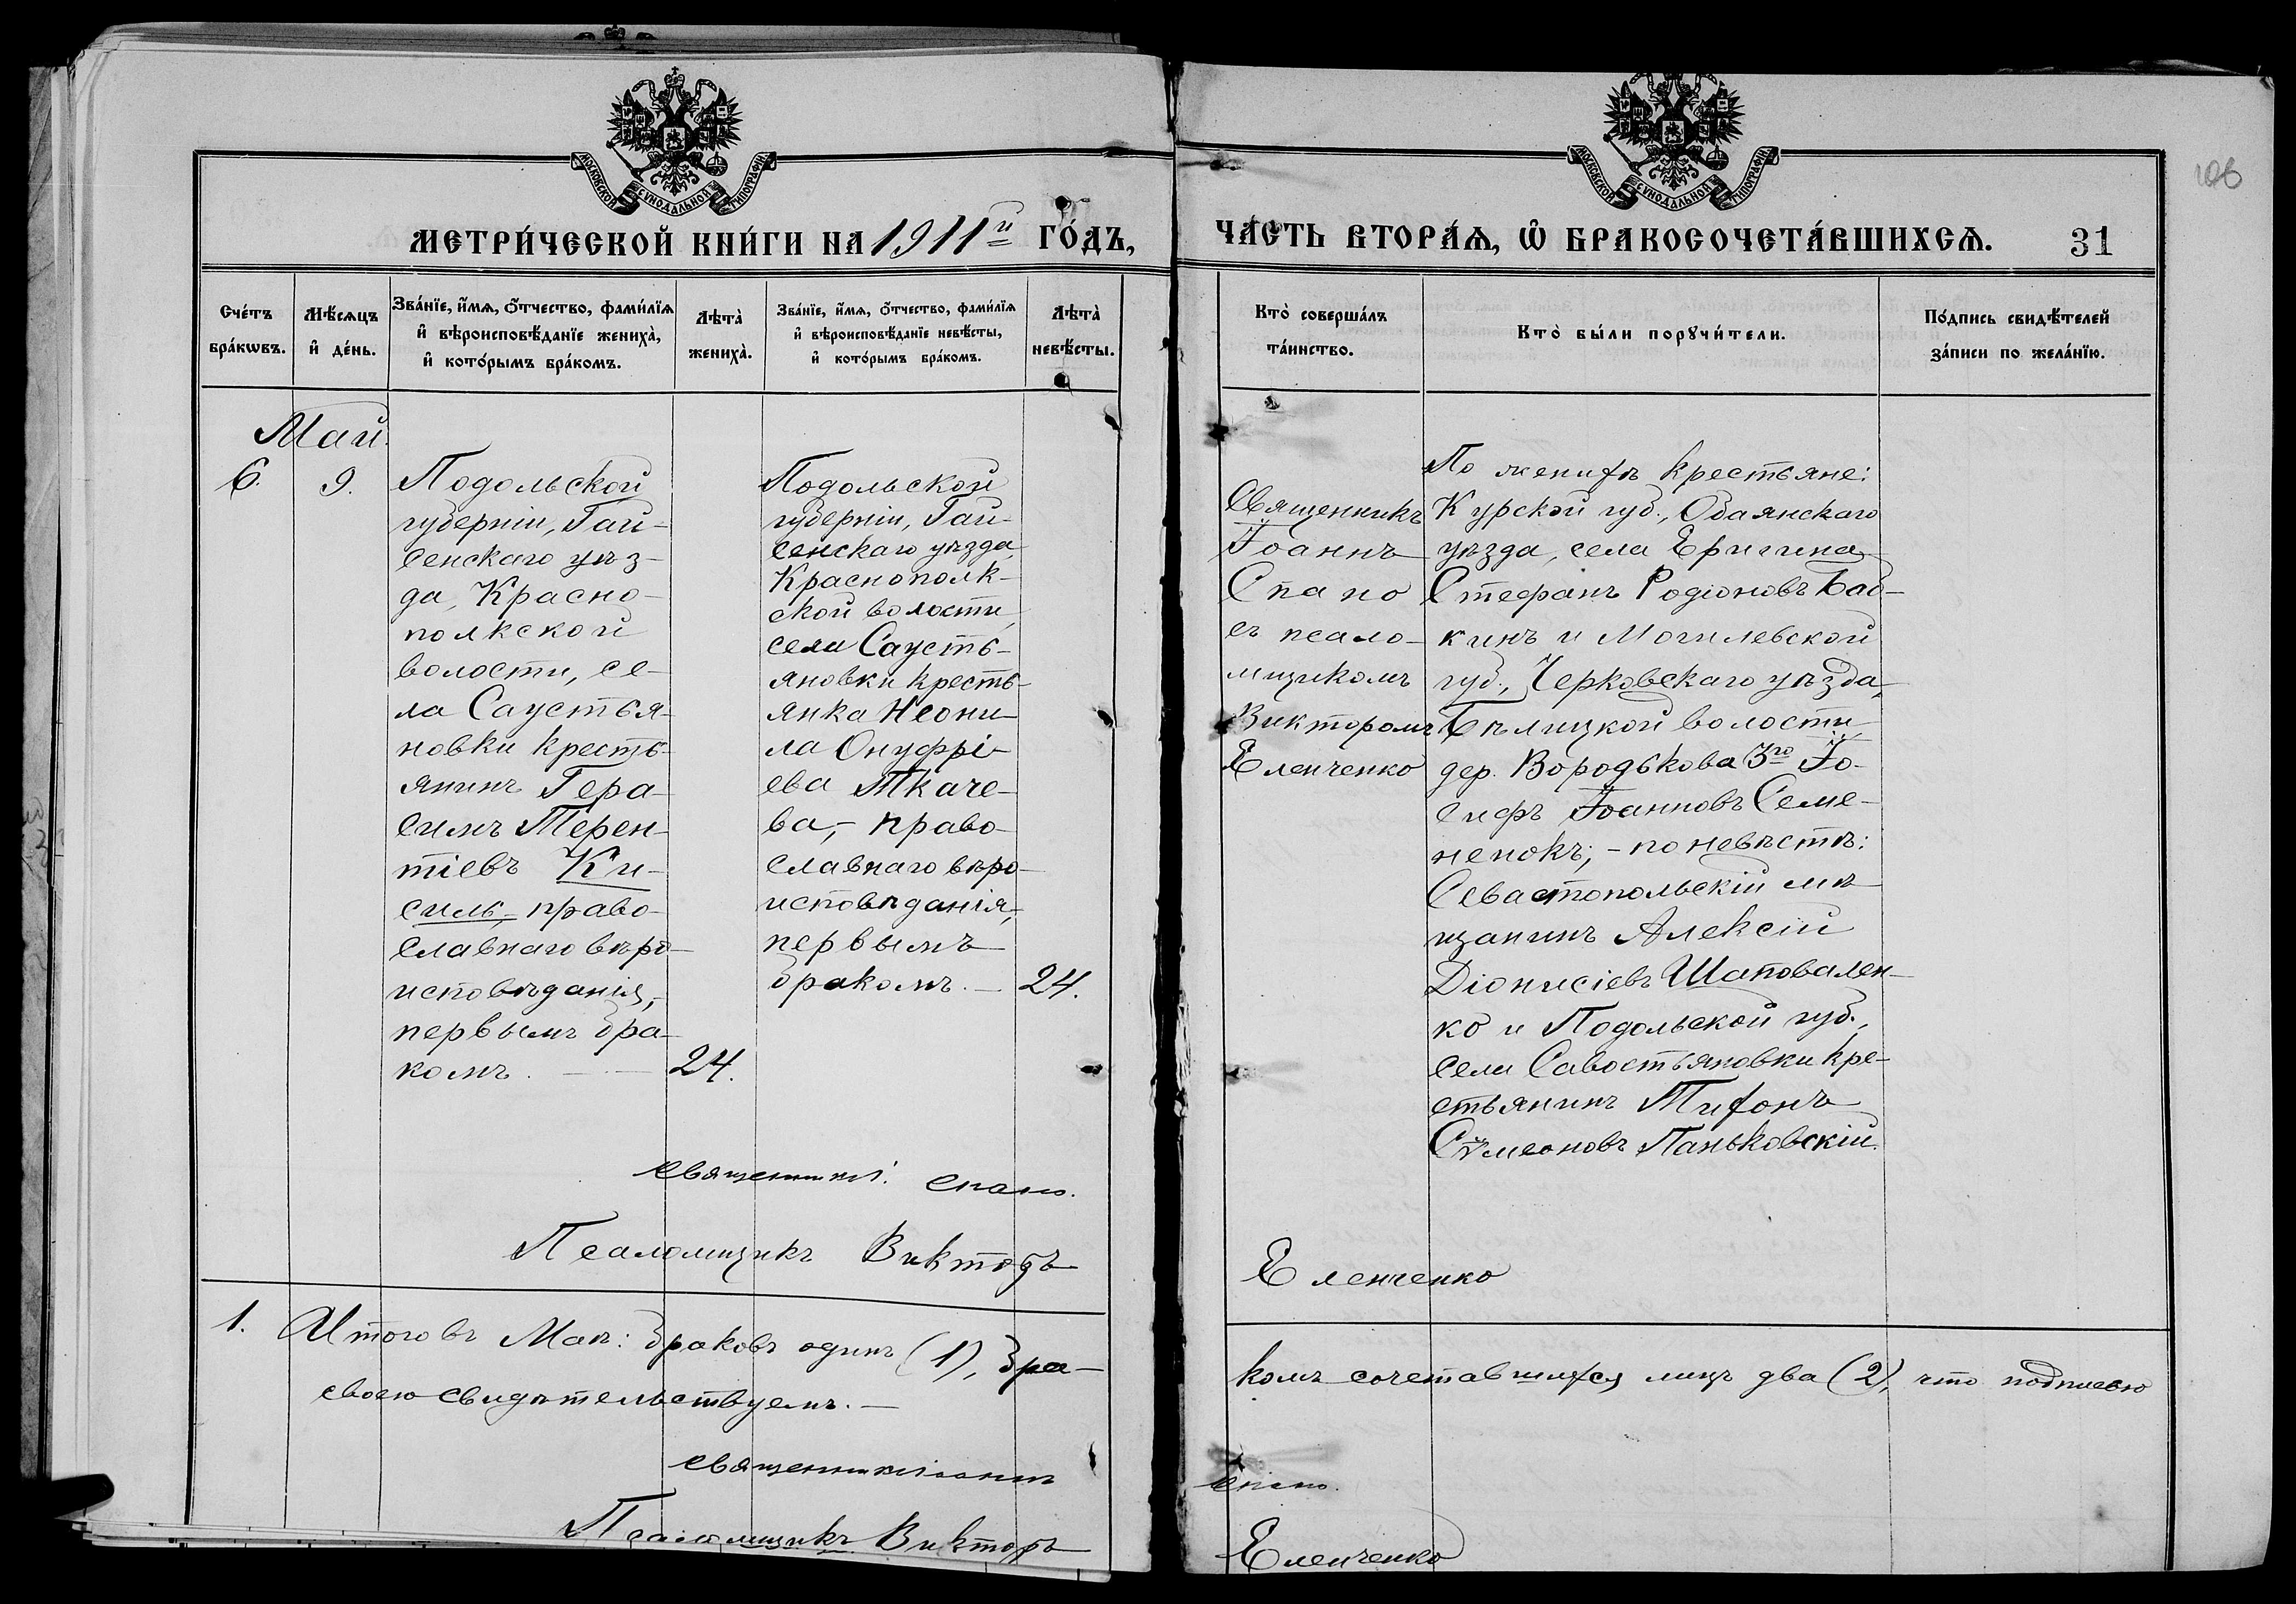 МОСКОВСКОЙ СѴНОДАЛЬНОЙ ТИПОГРАФІИ
МОСКОВСКОЙ СѴНОДАЛЬНОЙ ТИПОГРАФІИ
106
МЕТРИ́ЧЕСКОЙ КНИ́ГИ НА 1911й ГО́ДЪ,
ЧА́СТЬ ВТОРА́Ѧ, Ѡ БРАКОСОЧЕТА́ВШИХСѦ.
31
Сче́тъ
бра́кѡвъ.
Мѣ́сѧцъ
и҆ де́нь.
Зва́нїе, и҆́мѧ, ѻ҆́тчество, фами́лїѧ
и҆ вѣроисповѣ́данїе жениха̀,
и҆ кото́рымъ бра́комъ.
Лѣта̀
жениха̀.
Зва́нїе, и҆́мѧ, ѻ҆́тчество, фами́лїѧ
и҆ вѣроисповѣ́данїе невѣ́сты,
и҆ кото́рымъ бра́комъ.
Лѣта̀
невѣ́сты.
Кто̀ соверша́лъ
та́инство.
Кто̀ бы́ли порꙋчи́тели.
По́дпись свидѣ́телей
за́писи по жела́нїю.
Май.
6.
9.
Подольской
губерніи, Гай-
сенскаго уѣз-
да, Красно-
полкской
волости, се-
ла Саустья-
новки кресть-
янинъ Гера-
симъ Терен-
тіевъ Ки-
силь,- право-
славнаго вѣро-
исповѣданія,-
первымъ бра-
комъ. — —
24.
Подольской
губерніи, Гай-
сенскаго уѣзда,
Краснополк-
ской волости,
села Саусть-
яновки кресть-
янка Неони-
ла Онуфрі-
ева Ткаче-
ва,- право-
славнаго вѣро-
исповѣданія,-
первымъ
бракомъ. —
24.
Священникъ
Іоаннъ
Спано
съ псало-
мщикомъ
Викторомъ
Еленченко
По женихѣ крестьяне:
Курской губ., Обаянскаго
уѣзда, села Ериги­на,
Стефанъ Родіоновъ Баб-
кинъ и Могилевской
губ., Черковскаго уѣзда,
Бѣлицкой волости,
дер. Вородькова 3го Іо-
сифъ Іоанновъ Семе-
ненокъ; - по невѣстѣ:
Севастопольскій мѣ-
щанинъ Алексій
Діонисіевъ Шаповален-
ко и Подольской губ.,
села Савостьяновки кре-
стьянинъ Тихонъ
Сѵмеоновъ Паньковскій.
Священникъ І. Спано.
Псаломщикъ Викторъ
Еленченко
1.
Итого въ Маѣ: браковъ одинъ (1), бра-
комъ сочетавшихся лицъ два (2), что подписью
своею свидѣтельствуемъ. —
Священникъ Іоаннъ
Спано.
Псаломщикъ Викторъ
Еленченко